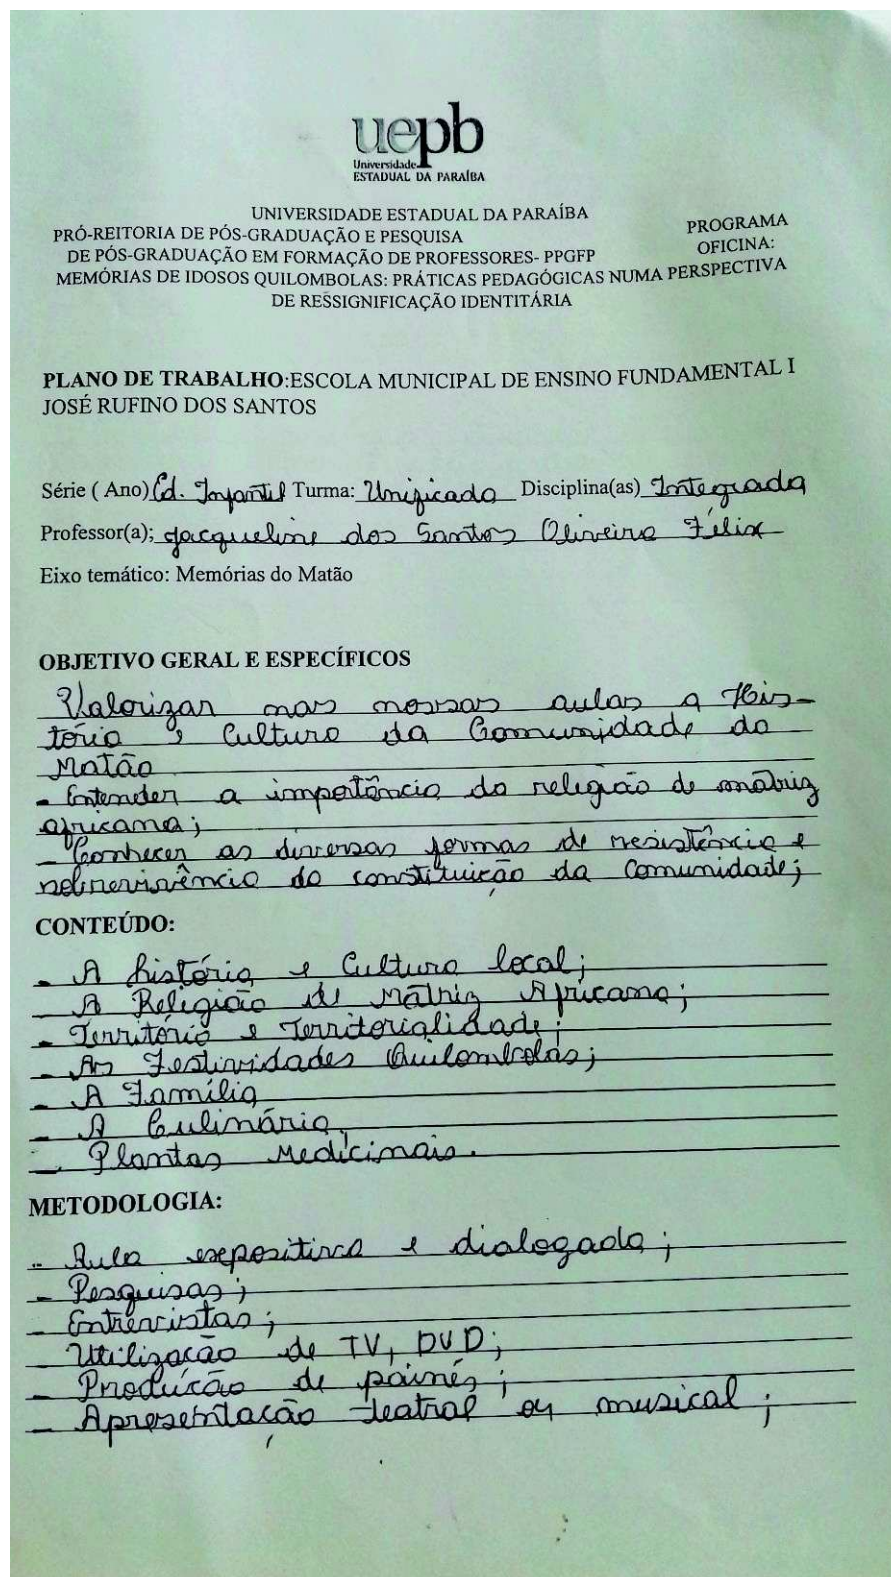 uepb
Universidade
ESTADUAL DA PARAÍBA
UNIVERSIDADE ESTADUAL DA PARAÍBA
PRÓ-REITORIA DE PÓS-GRADUAÇÃO E PESQUISA PROGRAMA
DE PÓS-GRADUAÇÃO EM FORMAÇÃO DE PROFESSORES- PPGFP OFICINA:
MEMÓRIAS DE IDOSOS QUILOMBOLAS: PRÁTICAS PEDAGÓGICAS NUMA PERSPECTIVA
DE RESSIGNIFICAÇÃO IDENTITÁRIA
PLANO DE TRABALHO:ESCOLA MUNICIPAL DE ENSINO FUNDAMENTAL I
JOSÉ RUFINO DOS SANTOS
Série ( Ano) Ed. Infantil Turma: Unificada Disciplina(as) Integrada
Professor(a); Jacqueline dos Santos Oliveira Félix
Eixo temático: Memórias do Matão
OBJETIVO GERAL E ESPECÍFICOS
Valorizar nas nossas aulas a His-
tória e Cultura da Comunidade do
Matão
- Entender a importância da religião de matriz
africana;
- Conhecer as diversas formas de resistência e
sobrevivência da constituição da Comunidade;
CONTEÚDO:
- A história e Cultura local;
- A Religião de Matriz Africana;
- Território e Territorialidade;
- As Festividades Quilombolas;
- A Família
- A Culinária,
- Plantas Medicinais.
METODOLOGIA:
- Aula expositiva e dialogada;
- Pesquisas;
- Entrevistas;
- Utilização de TV, DVD;
- Produção de painés;
- Apresentação teatral ou musical;